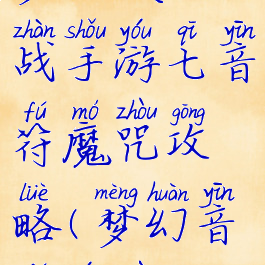 zhàn shǒu yóu qī yīn
战手游七音
fú mó zhòu gōng
符魔咒攻
lüè mèng huàn yīn
略(梦幻音